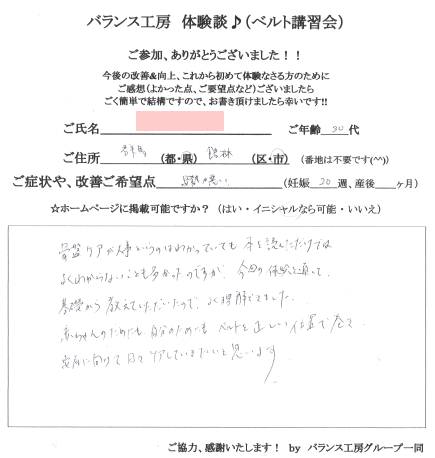 バランス工房 体験談♪(ベルト講習会)
ご参加、ありがとうございました！！
今後の改善&向上、これから初めて体験なさる方のために
ご感想(よかった点、ご要望点など)ございましたら
ごく簡単で結構ですので、お書き頂けましたら幸いです!!
ご氏名 ご年齢 30 代
ご住所 群馬 (都・県) 館林 (区・市) (番地は不要です(^^))
ご症状や、改善ご希望点 (妊娠 20 週、産後 ヶ月)
☆ホームページに掲載可能ですか？ (はい・イニシャルなら可能・いいえ)
骨盤ケアが大事というのはわかっていても 本を読しただけでは
よくわからないことも多かったのですが、今回の体験を通して、
基礎から教えていただいたので、よく理解できました。
赤ちゃんのためにも 自分のためにも ベルトを正しい位置で巻き、
安産に向けて 日々ケアしていきたいと思います
ご協力、感謝いたします！ by バランス工房グループ一同